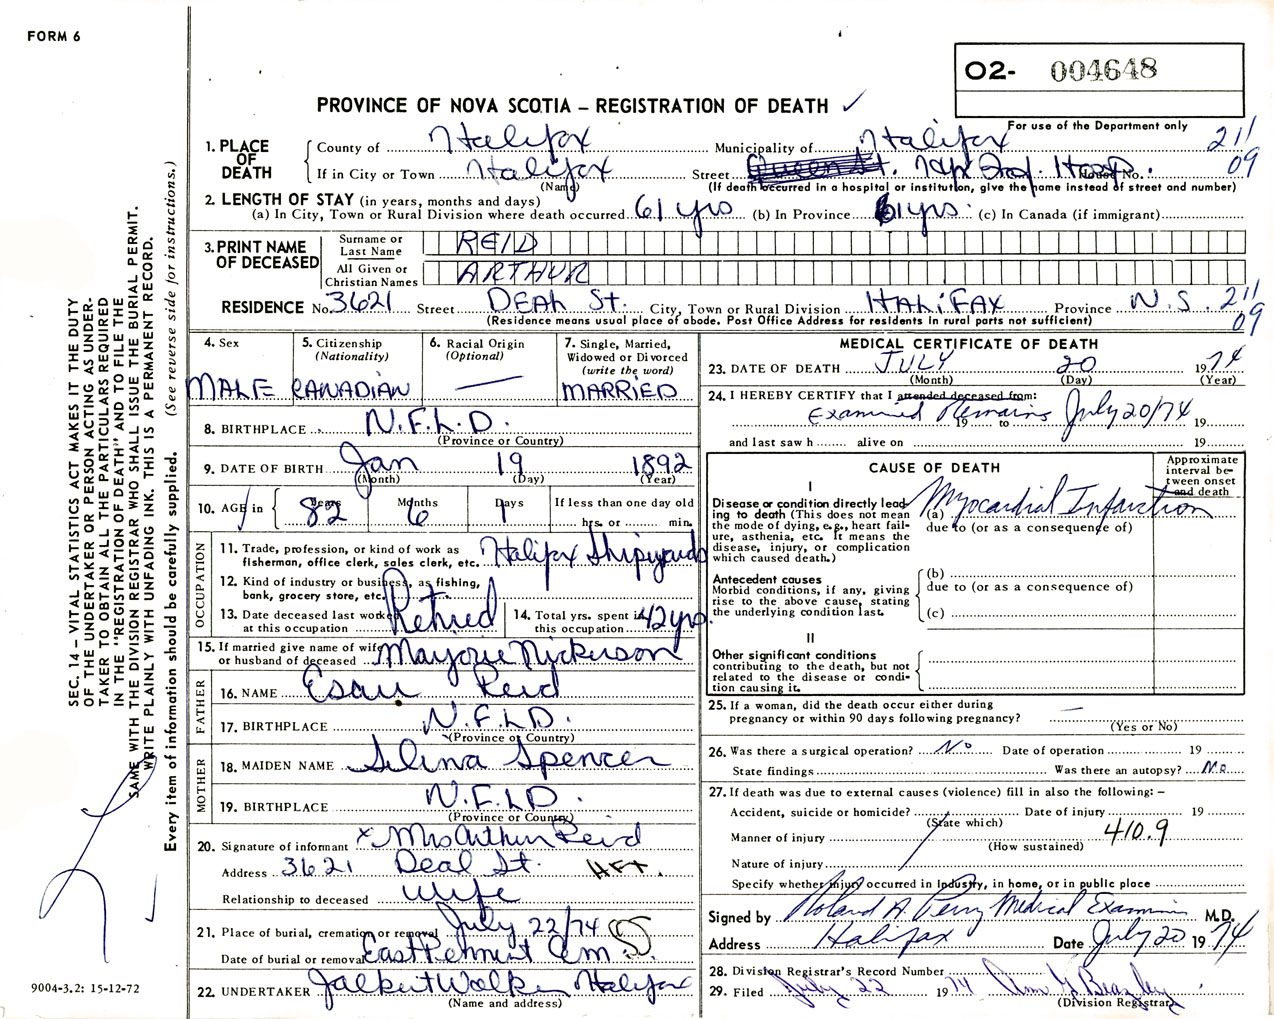 FORM 6
O2- 004648
PROVINCE OF NOVA SCOTIA – REGISTRATION OF DEATH ✓
For use of the Department only
211
09
1. PLACE OF DEATH
County of Halifax Municipality of Halifax
If in City or Town Halifax (Name) Street Queen St. Hosp. House No.
(If death occurred in a hospital or institution, give the name instead of street and number)
2. LENGTH OF STAY (in years, months and days)
(a) In City, Town or Rural Division where death occurred 61 yrs (b) In Province 61 yrs. (c) In Canada (if immigrant)
3. PRINT NAME OF DECEASED
Surname or Last Name REID
All Given or Christian Names ARTHUR
RESIDENCE No. 3621 Street DEAL St. City, Town or Rural Division HALIFAX Province N.S. 211
09
(Residence means usual place of abode. Post Office Address for residents in rural parts not sufficient)
4. Sex MALE
5. Citizenship (Nationality) CANADIAN
6. Racial Origin (Optional) —
7. Single, Married, Widowed or Divorced (write the word) MARRIED
8. BIRTHPLACE N.F.L.D.
(Province or Country)
9. DATE OF BIRTH Jan 19 1892
(Month) (Day) (Year)
10. AGE in Years 82 Months 6 Days 1 If less than one day old hrs. or min.
OCCUPATION
11. Trade, profession, or kind of work as fisherman, office clerk, sales clerk, etc. Halifax Shipyards
12. Kind of industry or business, as fishing, bank, grocery store, etc.
13. Date deceased last worked at this occupation Retired
14. Total yrs. spent in this occupation 42 yrs.
15. If married give name of wife or husband of deceased Marjorie Nickerson
FATHER
16. NAME Esau Reid
17. BIRTHPLACE N.F.L.D.
(Province or Country)
MOTHER
18. MAIDEN NAME Selina Spencer
19. BIRTHPLACE N.F.L.D.
(Province or Country)
20. Signature of informant x Mrs Arthur Reid
Address 3621 Deal St. HFX.
Relationship to deceased Wife
21. Place of burial, cremation or removal July 22/74
Date of burial or removal
22. UNDERTAKER Halifax
(Name and address)
MEDICAL CERTIFICATE OF DEATH
23. DATE OF DEATH JULY 20 1974
(Month) (Day) (Year)
24. I HEREBY CERTIFY that I attended deceased from:
Examined Remains July 20/74 19 to 19
and last saw h alive on 19
CAUSE OF DEATH
Approximate interval between onset and death
I
Disease or condition directly leading to death (This does not mean the mode of dying, e.g., heart failure, asthenia, etc. It means the disease, injury, or complication which caused death.)
(a) Myocardial Infarction
due to (or as a consequence of)
Antecedent causes
Morbid conditions, if any, giving rise to the above cause, stating the underlying condition last.
(b)
due to (or as a consequence of)
(c)
II
Other significant conditions
contributing to the death, but not related to the disease or condition causing it.
25. If a woman, did the death occur either during pregnancy or within 90 days following pregnancy? —
(Yes or No)
26. Was there a surgical operation? No Date of operation 19
State findings Was there an autopsy? No
27. If death was due to external causes (violence) fill in also the following: –
Accident, suicide or homicide? Date of injury 19
(State which)
Manner of injury 410.9
(How sustained)
Nature of injury
Specify whether injury occurred in Industry, in home, or in public place
Signed by Roland A. Perry Medical Examiner M.D.
Address Halifax Date July 20 1974
28. Division Registrar's Record Number
29. Filed July 22 1974
(Division Registrar)
SEC. 14 – VITAL STATISTICS ACT MAKES IT THE DUTY
OF THE UNDERTAKER OR PERSON ACTING AS UNDER-
TAKER TO OBTAIN ALL THE PARTICULARS REQUIRED
IN THE "REGISTRATION OF DEATH" AND TO FILE THE
SAME WITH THE DIVISION REGISTRAR WHO SHALL ISSUE THE BURIAL PERMIT.
WRITE PLAINLY WITH UNFADING INK. THIS IS A PERMANENT RECORD.
Every item of information should be carefully supplied. (See reverse side for instructions.)
9004-3.2: 15-12-72